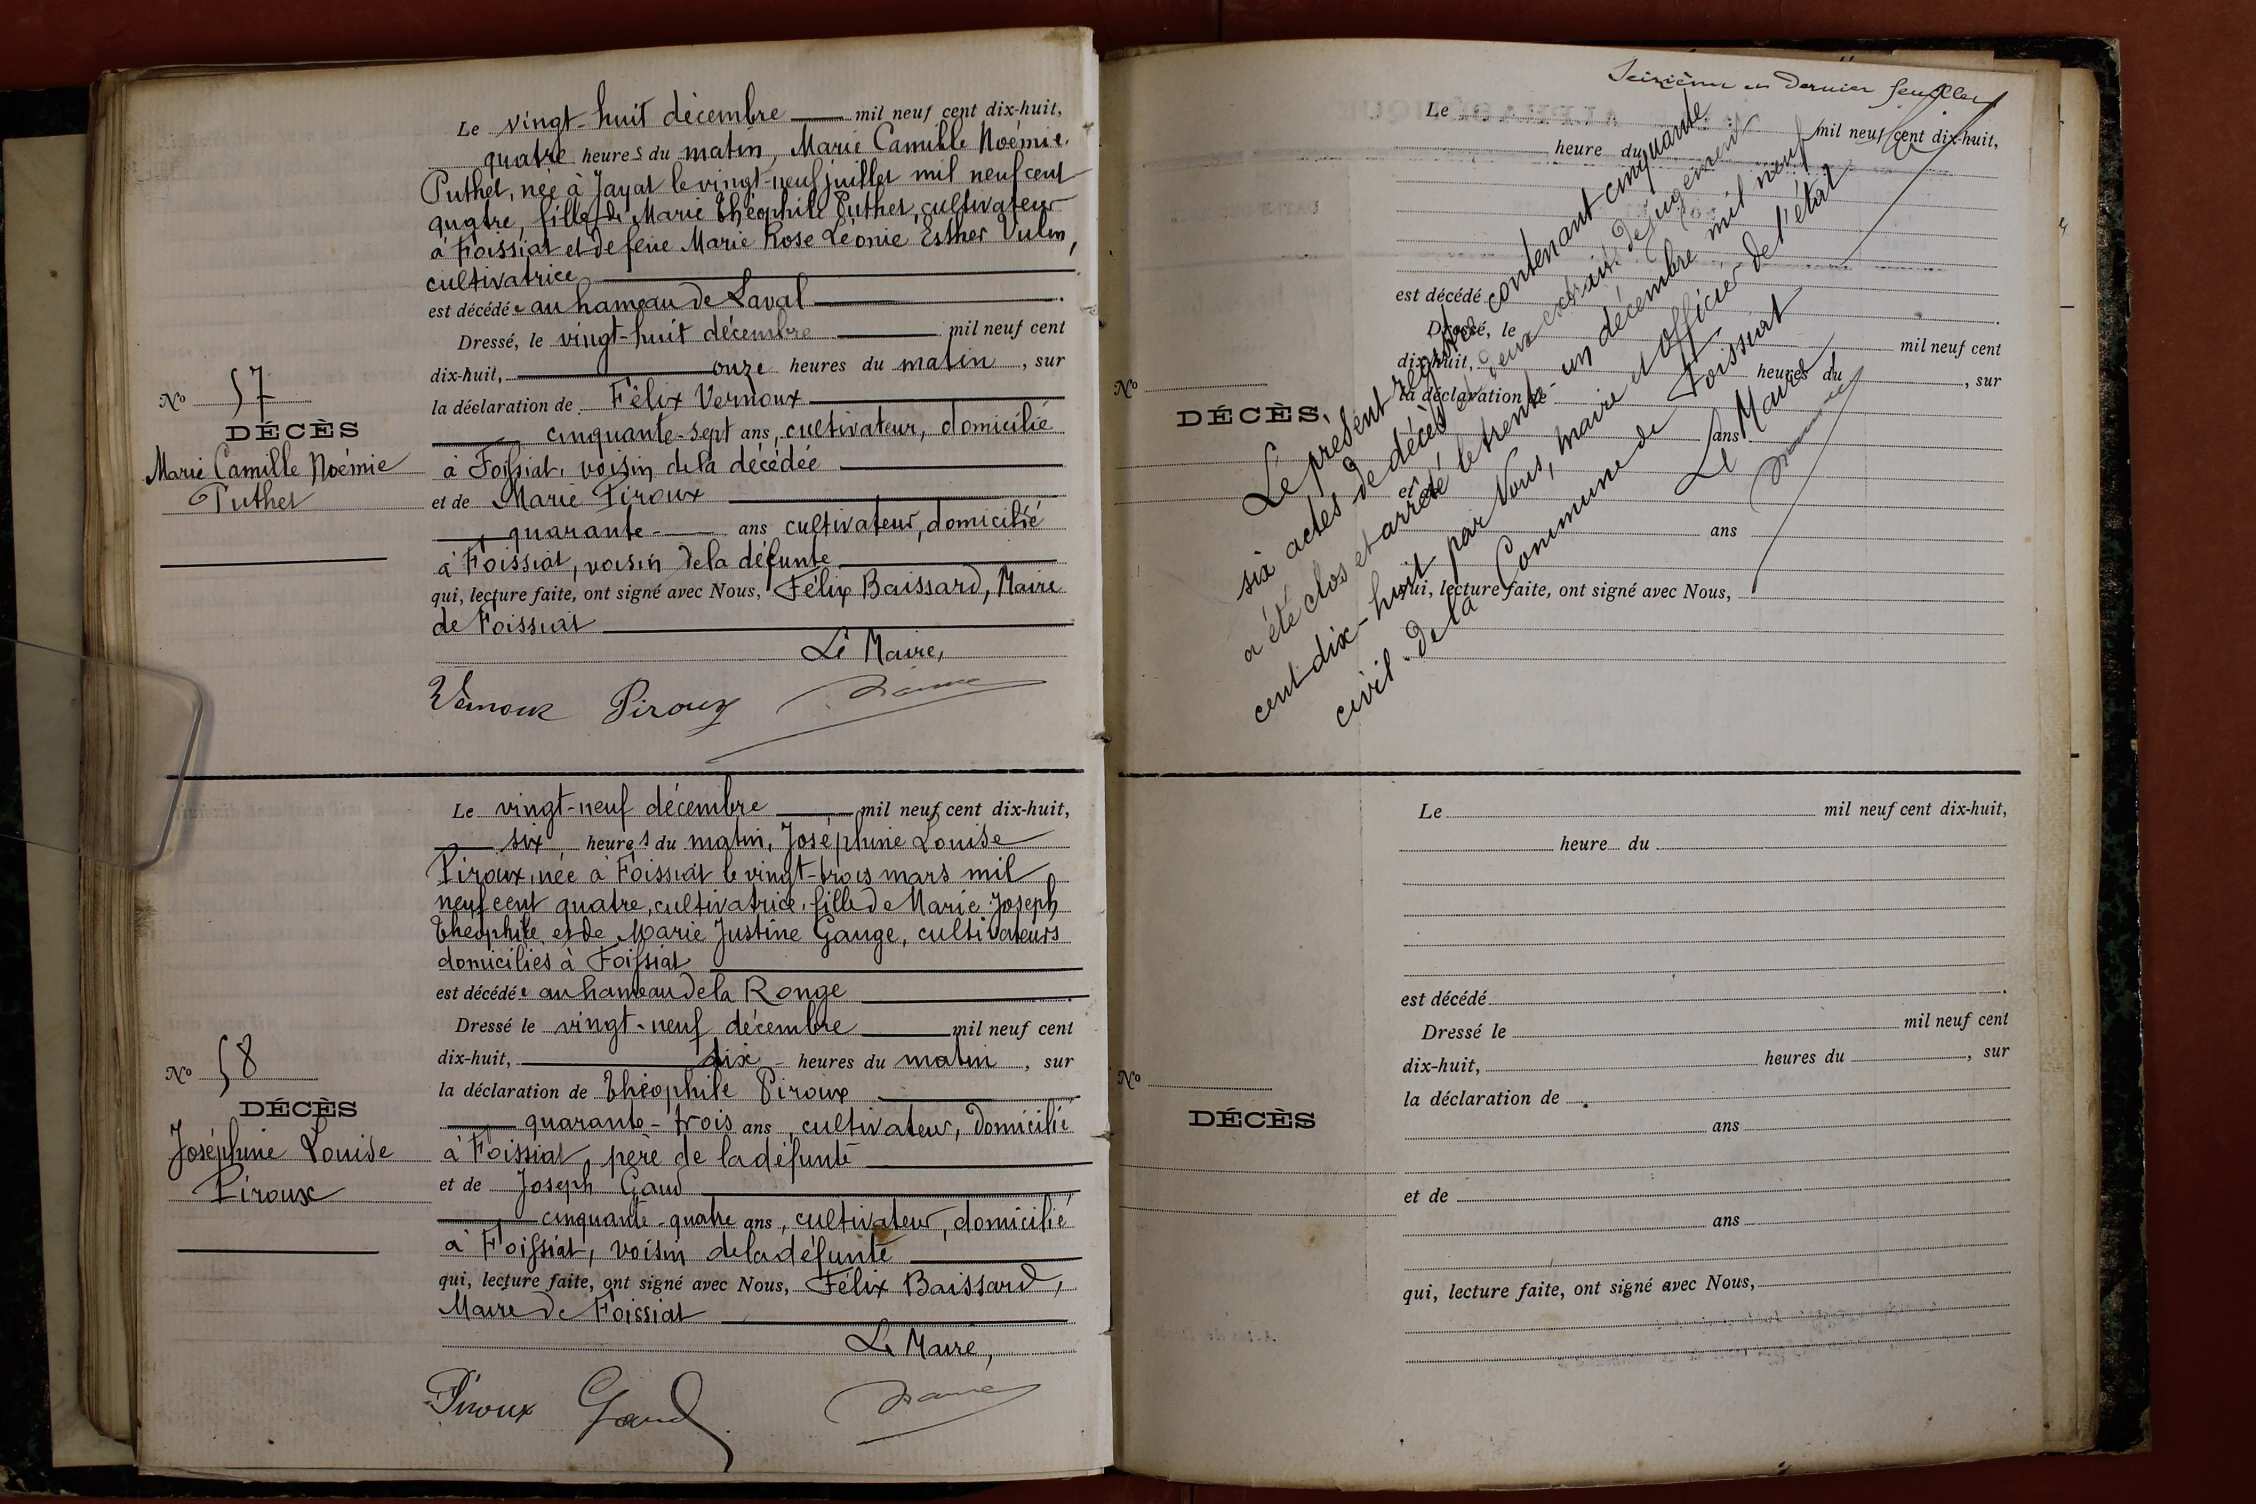 Le vingt-huit décembre mil neuf cent dix-huit,
quatre heures du matin, Marie Camille Noémie
Puthet, née à Jayat le vingt-neuf juillet mil neuf cent
quatre, fille de Marie Théophile Puthet, cultivateur
à Foissiat et de feue Marie Rose Léonie Esther Vulin,
cultivatrice
est décédée au hameau de Laval.
Dressé, le vingt-huit décembre mil neuf cent
dix-huit, onze heures du matin, sur
la déclaration de Félix Vernoux
cinquante-sept ans, cultivateur, domicilié
à Foissiat, voisin de la décédée
et de Marie Piroux
quarante- ans cultivateur, domicilié
à Foissiat, voisin de la défunte
qui, lecture faite, ont signé avec Nous, Félix Baissard, Maire
de Foissiat
Le Maire,
Vernoux Piroux
No 57
DÉCÈS
Marie Camille Noémie
Puthet
Le vingt-neuf décembre mil neuf cent dix-huit,
six heures du matin, Joséphine Louise
Piroux, née à Foissiat le vingt-trois mars mil
neuf cent quatre, cultivatrice, fille de Marie Joseph
Théophile et de Marie Justine Gauge, cultivateurs
domiciliés à Foissiat
est décédée au hameau de la Ronge.
Dressé le vingt-neuf décembre mil neuf cent
dix-huit, dix heures du matin, sur
la déclaration de Théophile Piroux
quarante-trois ans, cultivateur, domicilié
à Foissiat, père de la défunte
et de Joseph Gaud
cinquante-quatre ans, cultivateur, domicilié
à Foissiat, voisin de la défunte
qui, lecture faite, ont signé avec Nous, Félix Baissard,
Maire de Foissiat
Le Maire,
Piroux Gaud
No 58
DÉCÈS
Joséphine Louise
Piroux
Seizième et Dernier feuillet
Le mil neuf cent dix-huit,
heure du
est décédé
Dressé, le mil neuf cent
dix-huit, heures du , sur
la déclaration de
ans
et de
ans
qui, lecture faite, ont signé avec Nous,
No
DÉCÈS
Le présent registre contenant cinquante
six actes de décès et deux extraits de jugement
a été clos et arrêté le trente-un décembre mil neuf
cent dix-huit par Nous, maire et officier de l'état
civil de la Commune de Foissiat
Le Maire
Le mil neuf cent dix-huit,
heure du
est décédé .
Dressé le mil neuf cent
dix-huit, heures du , sur
la déclaration de
ans
et de
ans
qui, lecture faite, ont signé avec Nous,
No
DÉCÈS